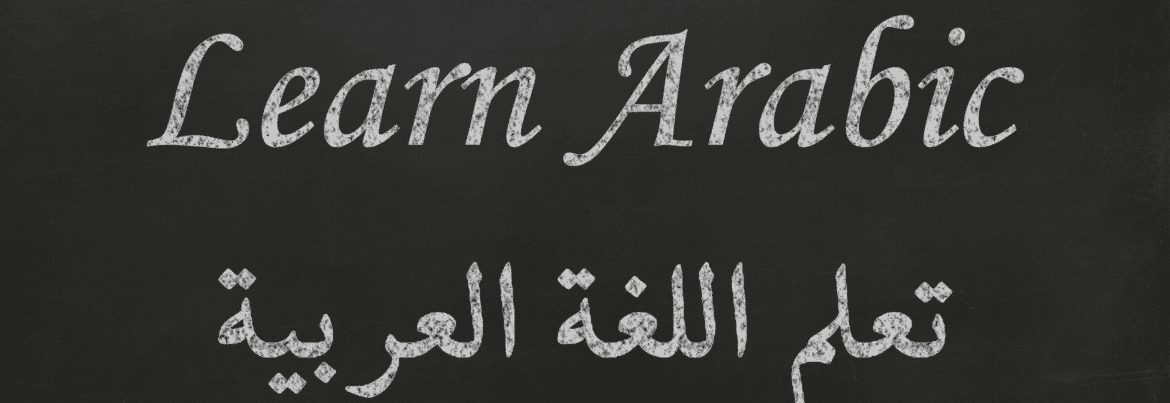 Learn Arabic
تعلم اللغة العربية